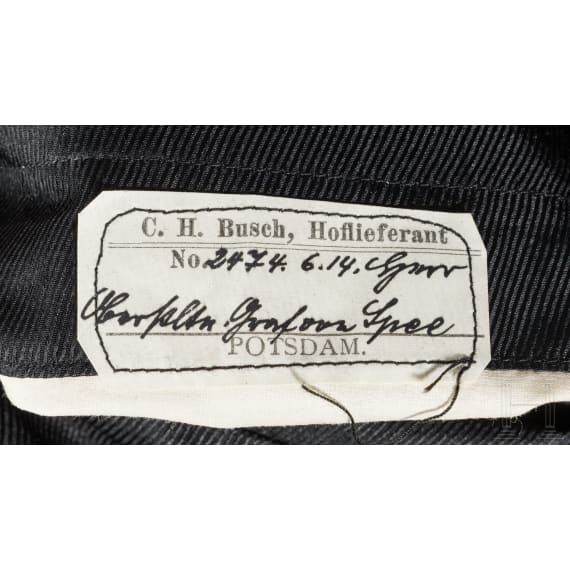 C. H. Busch, Hoflieferant
No. 2474. 6.14. Herr
Oberstltn Graf von Spee
POTSDAM.